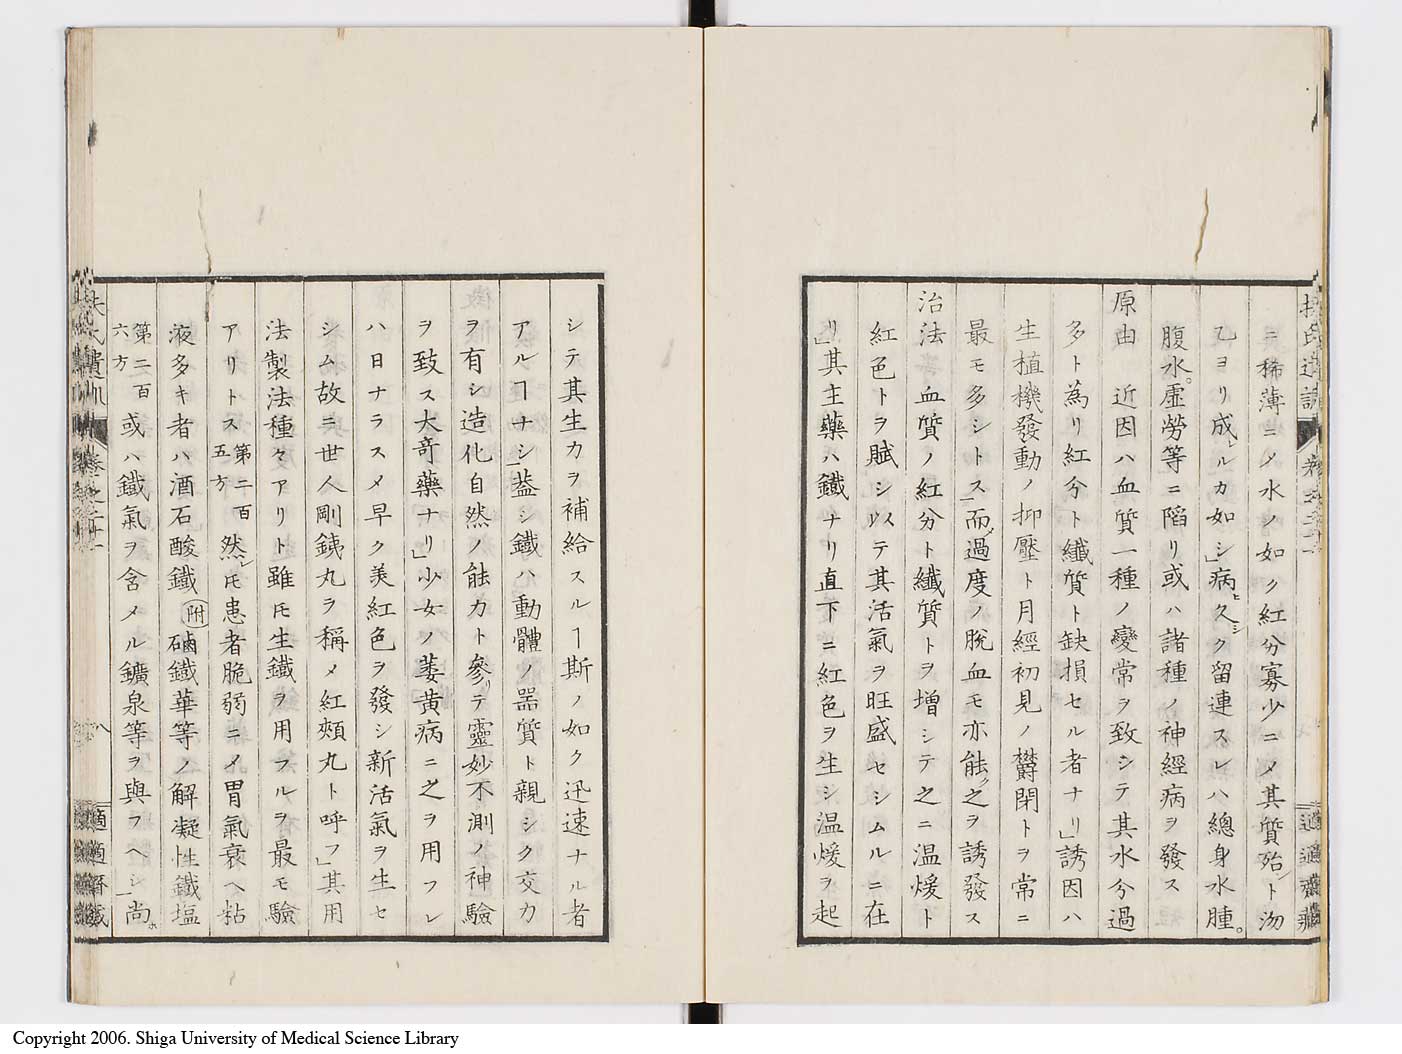 ニ稀薄ニ〆水ノ如ク紅分寡少ニ〆其質殆ント沕
乙ヨリ成レルカ如シ」病ヒ久シク留連スレハ總身水腫。
腹水。虚勞等ニ陷リ或ハ諸種ノ神經病ヲ發ス
原由 近因ハ血質一種ノ變常ヲ致シテ其水分過
多ト為リ紅分ト纎質ト缺損セル者ナリ」誘因ハ
生植機發動ノ抑壓ト月經初見ノ欝閉トヲ常ニ
最モ多シトス」而〆過度ノ脫血モ亦能ク之ヲ誘發ス
治法 血質ノ紅分ト纎質トヲ增シテ之ニ温煖ト
紅色トヲ賦シ以テ其活氣ヲ旺盛セシムルニ在
リ」其主藥ハ鐵ナリ直下ニ紅色ヲ生シ温煖ヲ起
シテ其生力ヲ補給スルヿ斯ノ如ク迅速ナル者
アルヿナシ」蓋シ鐵ハ動體ノ器質ト親シク交力
ヲ有シ造化自然ノ能力ト參リテ靈妙不測ノ神驗
ヲ致ス大奇藥ナリ」少女ノ萎黄病ニ之ヲ用フレ
ハ日ナラス〆早ク美紅色ヲ發シ新活氣ヲ生セ
シム故ニ世人剛銕丸ヲ稱〆紅頰丸ト呼フ」其用
法製法種々アリト雖𪜈生鐵ヲ用フルヲ最モ驗
アリトス 第二百五方 然レ𪜈患者脆弱ニ〆胃氣衰ヘ粘
液多キ者ハ酒石酸鐵 附 磠鐵華等ノ解凝性鐵塩
第二百六方 或ハ鐵氣ヲ含メル鑛泉等ヲ與フヘシ」尚ホ